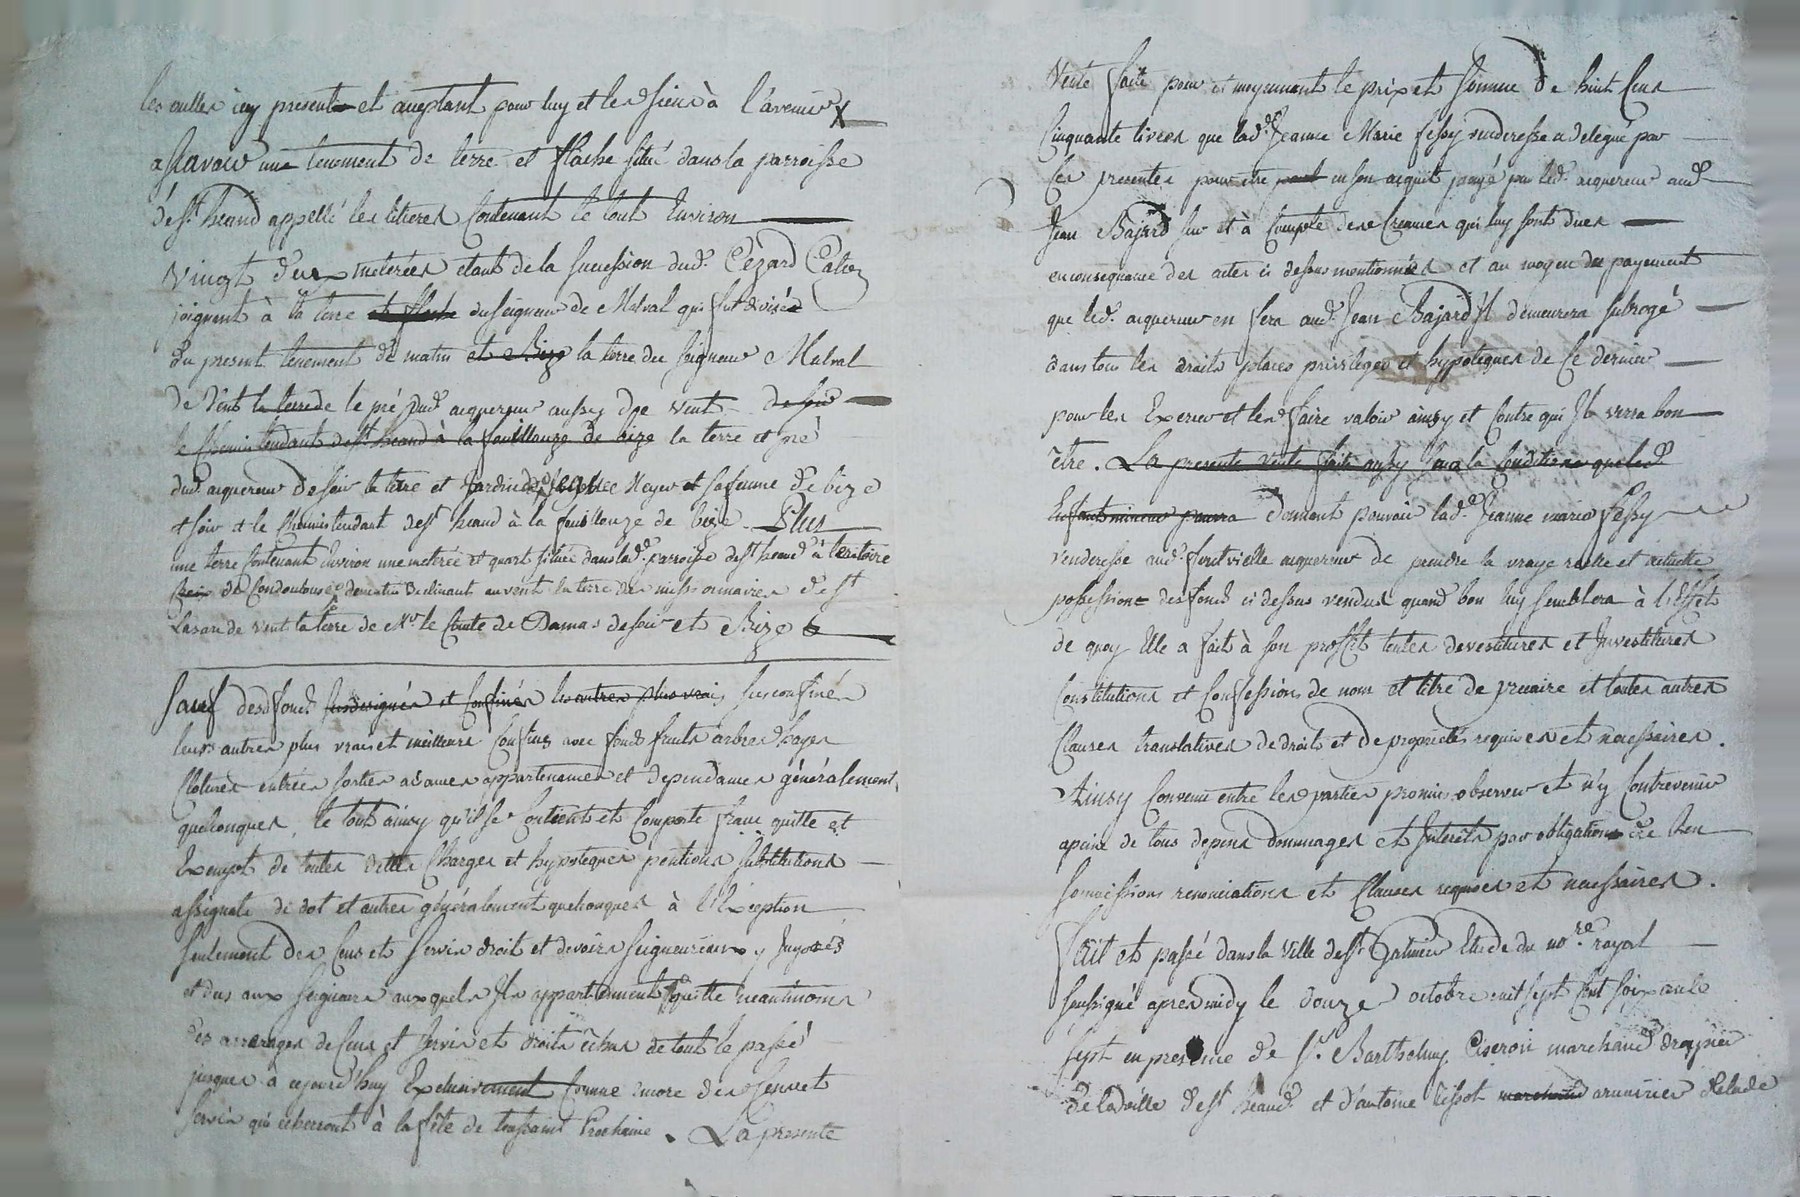 les aulles icy present et aceptant pour luy et les siens à l'avenir X
assavoir une tenement de terre et flache situé dans la parroisse
de St heand appellé les litieres Contenant le tout Environ
vingt deux meterées etant de la succession dud. Cézard
joignant à la terre et flache du seigneur de Malval qui fut divisée
du present tenement de matin et Bize la terre du seigneur Malval
de vent la terre de le pré dud acquereur aussy de vent de soir
le Chemin tendant de St heand à la fouillouze de bize la terre et pré
dud acquereur de soir la terre et Jardin de Meyer et sa femme de bize
et soir et le Chemin tendant de St heand à la fouillouze de bize. Plus
une terre Contenant Environ une metrée et quart située dans lad. parroisse de St heand à territoire
de Condoulouse de matin declinant au vent la terre des missionnaires de St
Lazare de vent la terre de Mr le Comte de Damas de soir et Bize
Sauf desd fonds susdesignés et Confinés les autres plus vrais susconfinés
leurs autres plus vrais et meilleurs Confins avec fonds fruits arbres hayes
Clotures entrées sorties aisances appartenances et dependances généralement
quelconques, le tout ainsy qu'il se Contient et Comporte franc quitte et
Exempt de toutes dettes Charges et hypoteques pentions substitutions
assignats de dot et autres généralement quelconques à l'Exception
seulement des Cens et servis droit et devoirs seigneuriaux y Imposés
et dus aux seigneurs auxquels Ils appartiennent quitte neantmoins
des arrerages de Cens et servis et droits échus de tout le passé
jusques à cejourd'huy Exclusivement comme encore des Cens et
servis qui echerront à la fête de toussaint Prochaine. La presente
Vente faite pour et moyennant le prix et somme de huit Cens
Cinquante livres que lad. Jeanne Marie fessy venderesse a delegué par
ces presentes pour etre en son acquit payé par led. acquereur aud
Jean Bajard sur et à Compte des Creances qui luy sont dues
en consequence des actes ci dessus mentionnés et au moyen du payement
que led. acquereur en fera aud. Jean Bajard Il demeurera subrogé
dans tous les droits places privileges et hypoteques de Ce dernier
pour les Exercer et les faire valoir ainsy et Contre qui Il verra bon
être. La presente vente faite aussy sous la Condition que led
Enfants mineur pourra Donnant pouvoir lad. Jeanne marie fessy
venderesse aud. fontvielle acquereur de prendre la vraye reelle et actuelle
possession des fonds ci dessus vendus quand bon luy semblera à l'Effet
de quoy Elle a fait à son proffit toutes devestitures et Investitures
Constitutions et Confessions de nom et titre de precaire et toutes autres
Clauses translatives de droits et de proprieté requises et necessaires.
Ainsy Convenu entre les parties promis observer et n'y Contrevenir
apeine de tous depens dommages et Interets par obligation de biens
soumissions renonciations et Clauses requises et necessaires.
fait et passé dans la ville de St Galmier Etude du nore royal
soussigné apres midy le douze octobre mil sept Cent soixante
sept en presence de Sr. Barthelmy Ciseron marchand drapier
de la ville de St heand et d'antoine tissot marchand armurier de lad